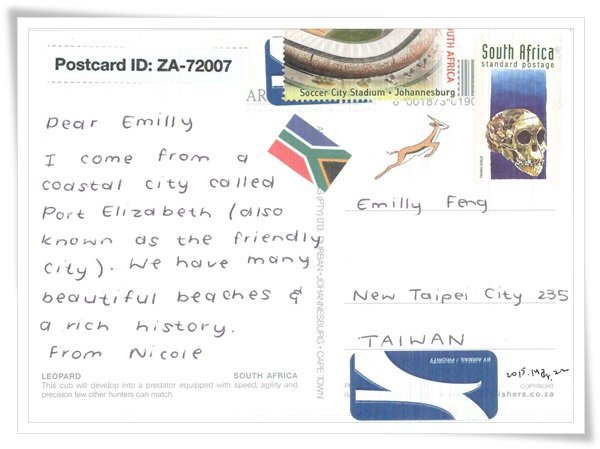 Postcard ID: ZA-72007
SOUTH AFRICA
Soccer City Stadium • Johannesburg
South Africa
standard postage
Dear Emilly
I come from a
coastal city called
Port Elizabeth (also
known as the friendly
city). We have many
beautiful beaches &
a rich history.
From Nicole
Emilly Feng
New Taipei City 235
TAIWAN
DURBAN • JOHANNESBURG • CAPE TOWN
LEOPARD SOUTH AFRICA
This cub will develop into a predator equipped with speed, agility and
precision few other hunters can match.
BY AIRMAIL / PRIORITY
COPYRIGHT